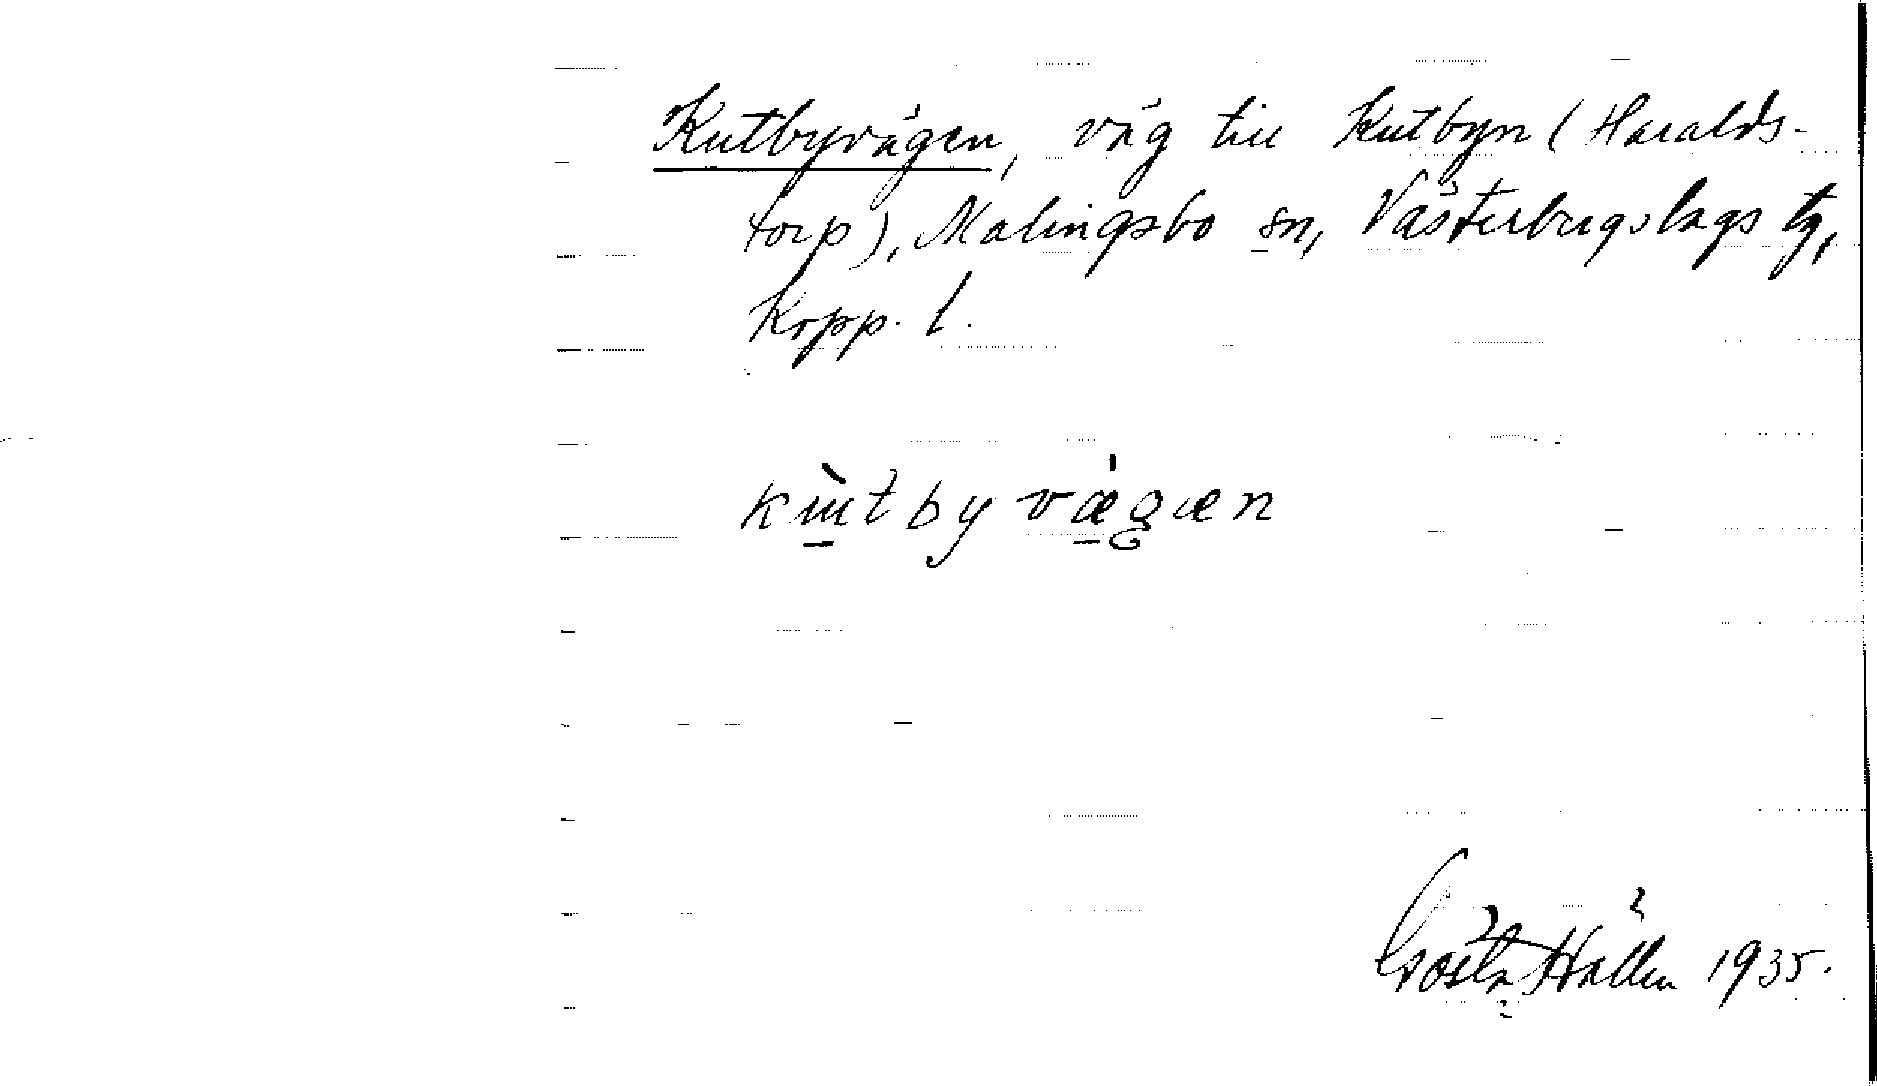 Kutbyvägen, väg till Kutbyn (Haralds-
torp), Malingsbo sn, Västerbergslags tg,
Kopp. l.
kɯ̀tbyvægæn
Gösta Hallén 1935.